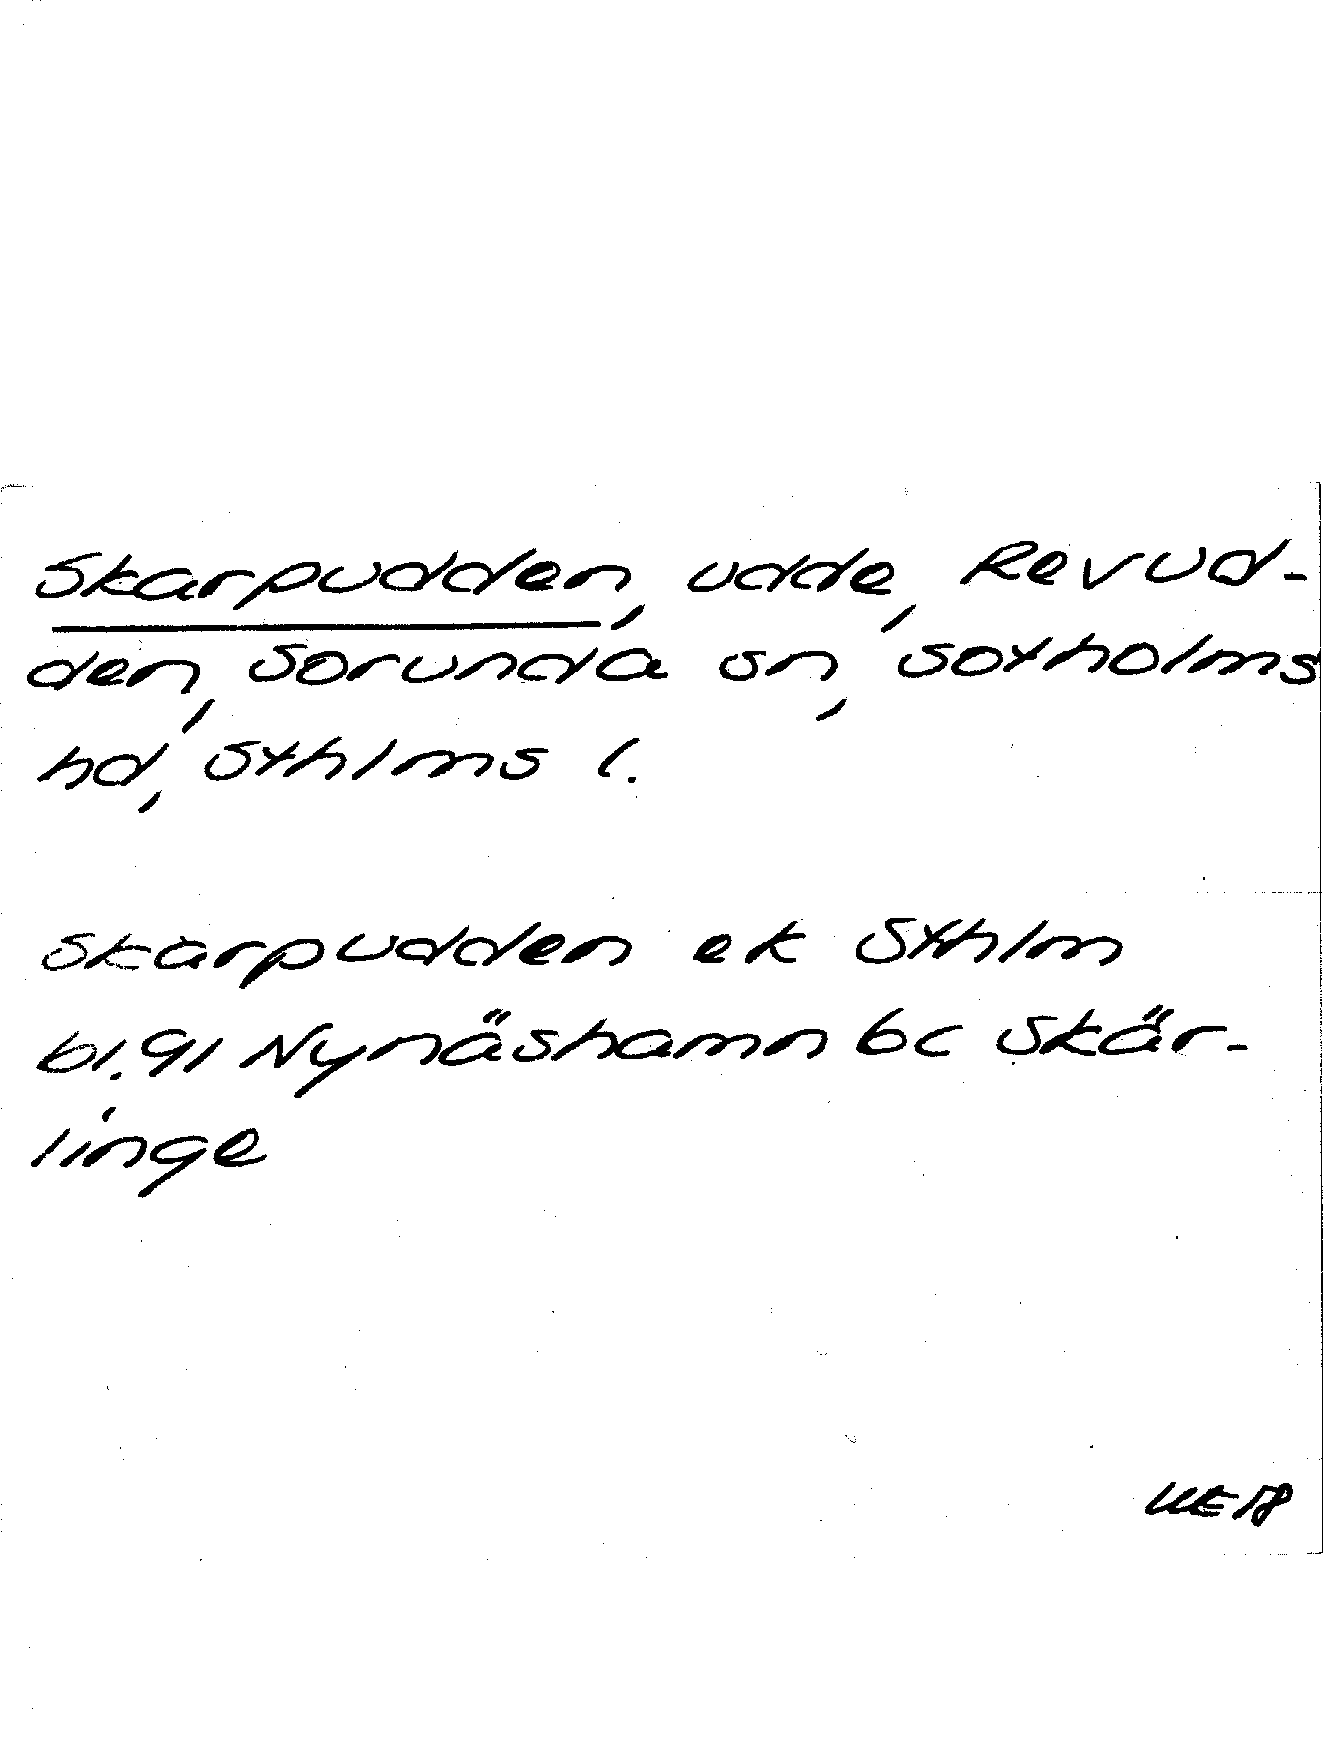 Skarpudden, udde, Revud-
den, Sorunda sn, Sotholms
hd, Sthlms l.
Skarpudden ek Sthlm
bl. 91 Nynäshamn bc Skär-
linge